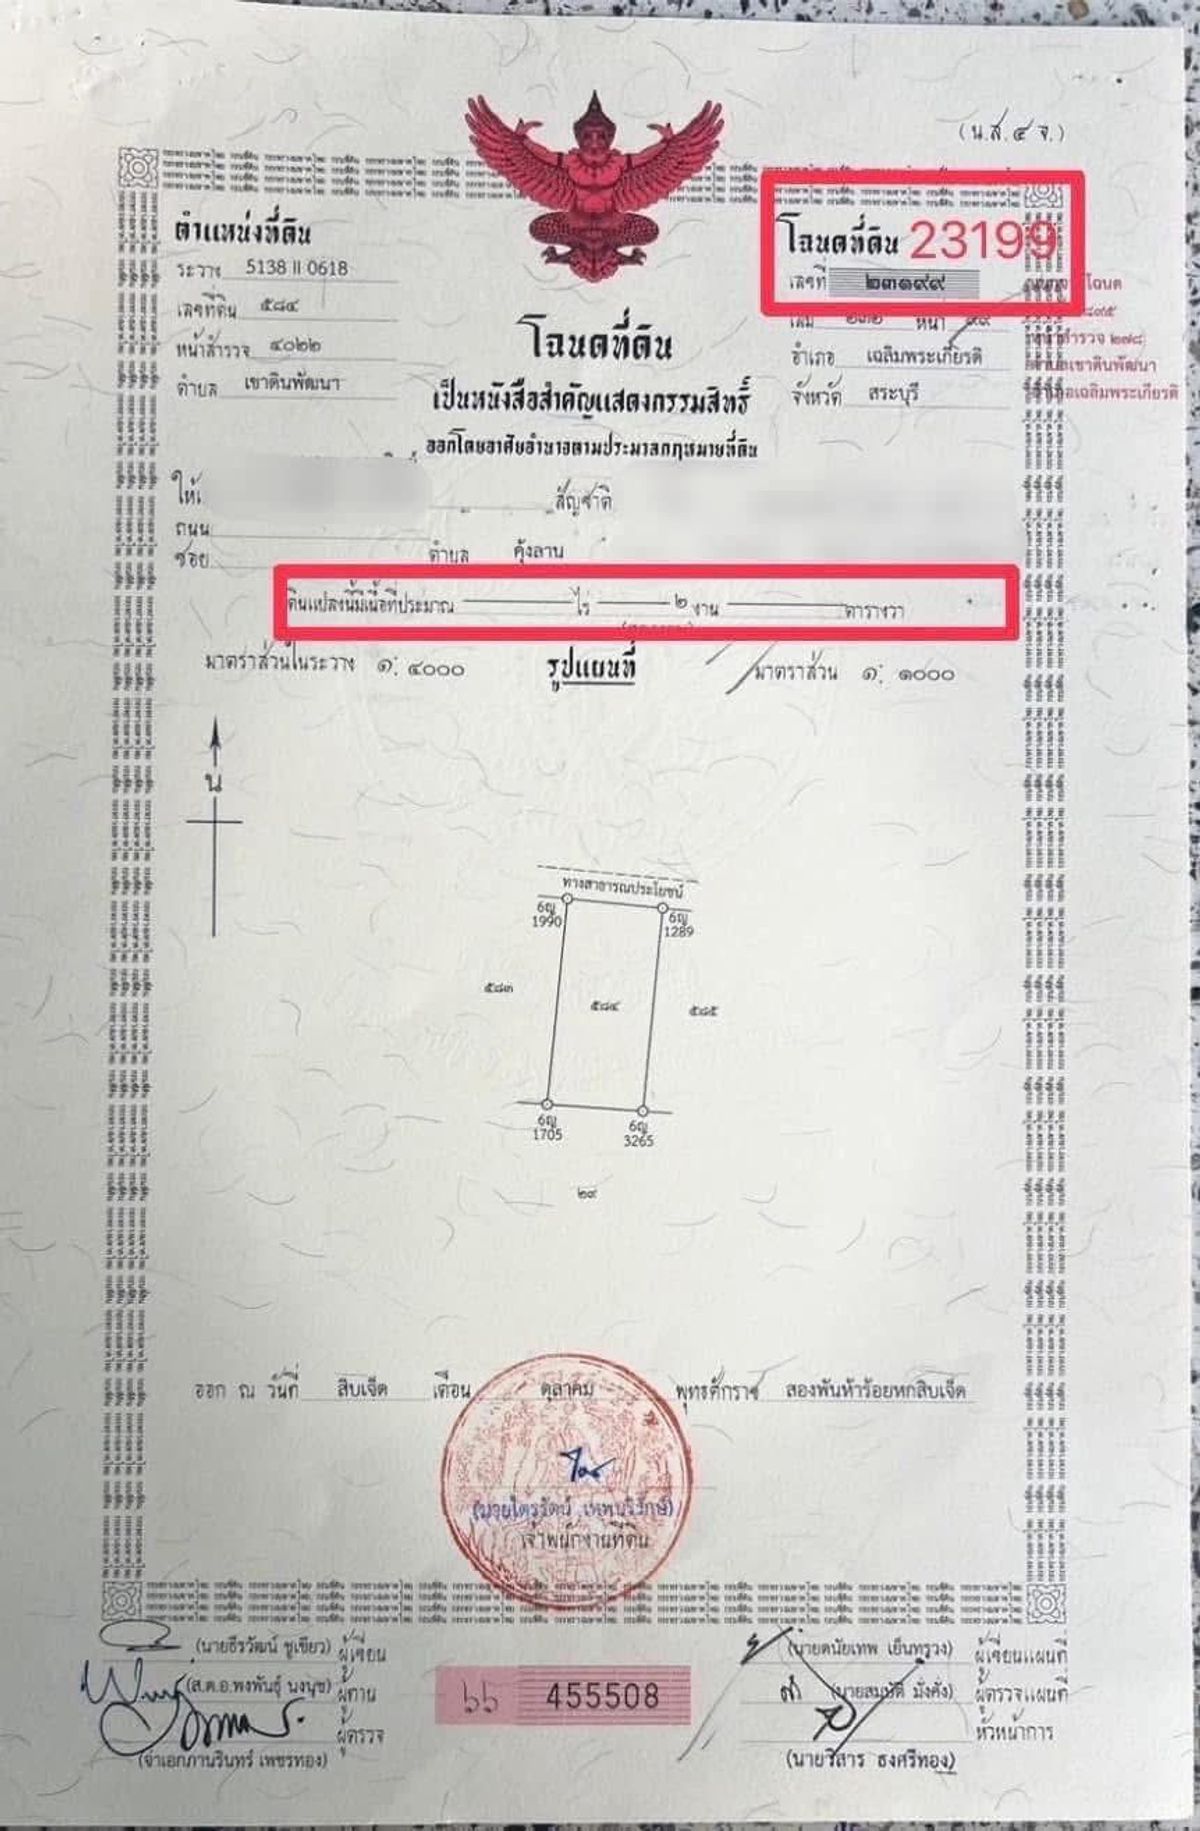 (น.ส.๔ จ.)
ตำแหน่งที่ดิน
ระวาง 5138 II 0618
เลขที่ดิน ๕๘๔
หน้าสำรวจ ๔๐๒๒
ตำบล เขาดินพัฒนา
โฉนดที่ดิน 23199
เลขที่ ๒๓๑๙๙
เล่ม ๒๓๒ หน้า ๙๙
อำเภอ เฉลิมพระเกียรติ
จังหวัด สระบุรี
โฉนด
หน้าสำรวจ ๒๗๘
ตำบลเขาดินพัฒนา
อำเภอเฉลิมพระเกียรติ
โฉนดที่ดิน
เป็นหนังสือสำคัญแสดงกรรมสิทธิ์
ออกโดยอาศัยอำนาจตามประมวลกฎหมายที่ดิน
ให้ สัญชาติ
ถนน
ซอย ตำบล คุ้งลาน
ดินแปลงนี้มีเนื้อที่ประมาณ ไร่ ๒ งาน ตารางวา
มาตราส่วนในระวาง ๑: ๔๐๐๐ รูปแผนที่ มาตราส่วน ๑: ๑๐๐๐
น
ทางสาธารณประโยชน์
6ญ 1990
6ญ 1289
๕๘๓ ๕๘๔ ๕๘๕
6ญ 1705
6ญ 3265
๒๙
ออก ณ วันที่ สิบเจ็ด เดือน ตุลาคม พุทธศักราช สองพันห้าร้อยหกสิบเจ็ด
(นายไตรรัตน์ เทพบริรักษ์)
เจ้าพนักงานที่ดิน
(นายธีรวัฒน์ ชูเขียว) ผู้เขียน
(ส.ต.อ.พงพันธุ์ นงนุช) ผู้ทาน
ผู้ตรวจ
(จ่าเอกภานรินทร์ เพชรทอง)
๖๖ 455508
(นายดนัยเทพ เย็นทรวง) ผู้เขียนแผนที่
(นายสมบัติ มั่งคั่ง) ผู้ตรวจแผนที่
หัวหน้าการ
(นายวิสาร ธงศรีทอง)